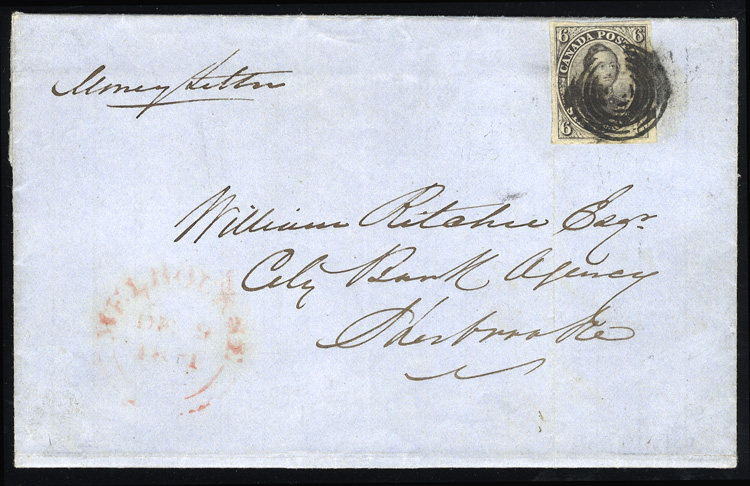 Money Letter
6 CANADA POS 6
6
William Ritchie Esqr
City Bank Agency
Sherbrooke
MELBOURNE